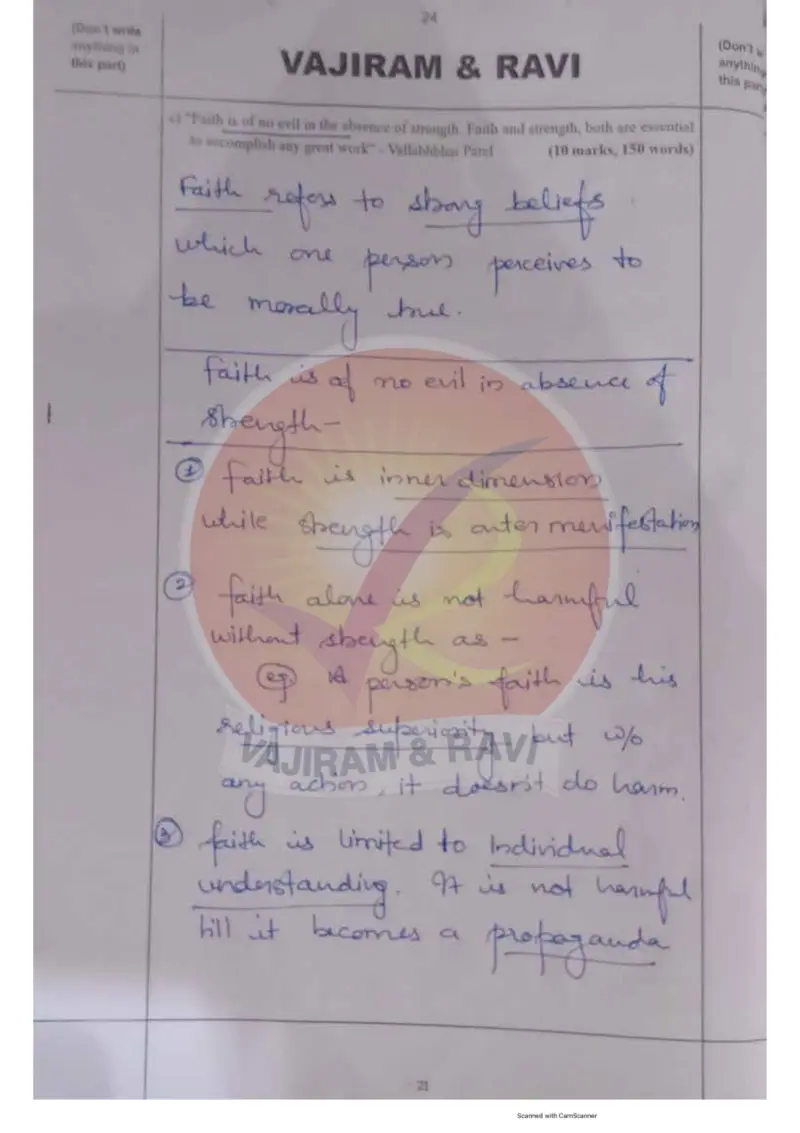 24
(Don't write
anything in
this part)
VAJIRAM & RAVI
(Don't w
anything
this par
c) "Faith is of no evil in the absence of strength. Faith and strength, both are essential
to accomplish any great work" - Vallabhbhai Patel (10 marks, 150 words)
Faith refers to strong beliefs
which one person perceives to
be morally true.
faith is of no evil in absence of
strength-
① faith is inner dimension
while strength is outer menifestation
② faith alone is not harmful
without strength as -
eg A person's faith is his
religious superiority but w/o
any action, it doesn't do harm.
VAJIRAM & RAVI
③ faith is limited to Individual
understanding. It is not harmful
till it becomes a propaganda
21
Scanned with CamScanner